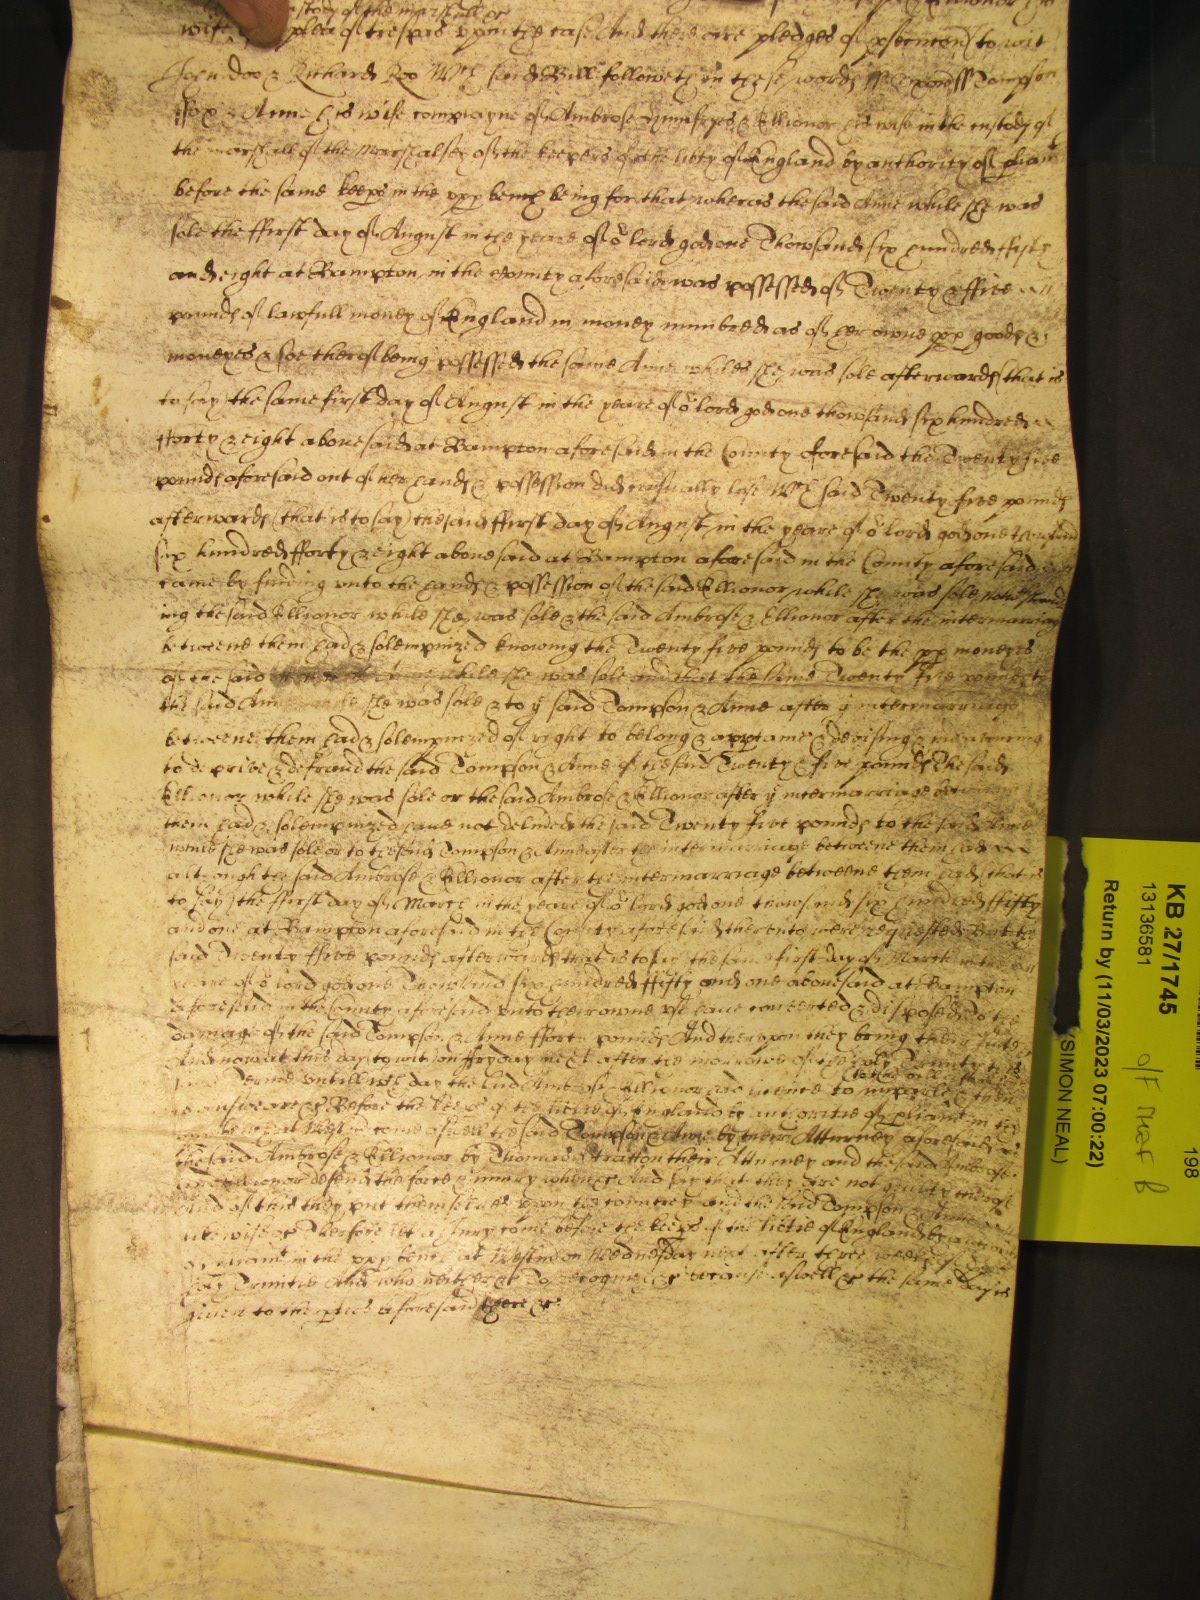 stody of the marshall &c
wife plea of trespas upon the case And there are pledges of p'secution to wit
John Doo & Richard Roo Wch said Bill followeth in these words ss Tompson
ffox & Anne his wife complayne of Ambrose & Ellionor his wife in the custody of
the marshall of the Marshalsey of the keepers of the lib'ty of England by authority of p'liamt
before the same keep's in the upp' bench being for that wheras the said Anne while she was
sole the ffirst day of August in the yeare of or lord god one Thowsand six hundred
and eight at Bampton in the County aforesaid was possessed of Twenty & ffive
pounds of lawfull money of England in money numbred as of her owne pp' goods &
moneyes & soe therof being possessed the same Anne whiles she was sole afterwards (that is
to say) the same first day of August in the yeare of or lord god one thowsand six hundred
fforty & eight abovesaid at Bampton aforesaid in the County aforesaid the Twenty five
pounds aforesaid out of her hands & possession did casually lose Wch said Twenty five pounds
afterwards (that is to say) the said ffirst day of August in the yeare of or lord god one thowsand
six hundred fforty & eight abovesaid at Bampton aforesaid in the County aforesaid
came by finding unto the hands & possession of the said Ellionor while she was sole notwthstand
ing the said Ellionor while she was sole & the said Ambrose & Ellionor after the intermarriage
betweene them had & solempnized knowing the Twenty five pounds to be the pp' moneyes
of the said Anne while she was sole and that the same Twenty five pounds to
the said Anne while she was sole & to ye said Tompson & Anne after ye intermarriage
betweene them had & solempnized of right to belong & app'taine & devising & intending
to deprive & defraud the said Tompson & Anne of the said Twenty & five pounds The said
Ellionor while she was sole or the said Ambrose & Ellionor after ye intermarriage betweene
them had & solempnized have not deliv'ed the said Twenty five pounds to the said Anne
while she was sole or to the said Tompson & Anne after the intermarriage betweene them had
although the said Ambrose & Ellionor after the intermarriage betweene them had (that is
to say) the ffirst day of March in the yeare of or lord god one thowsand six hundred ffifty
and one at Bampton aforesaid in the County aforesaid therento were requested But the
said Twenty ffive pounds afterwards that is to say the same first day of March in the
yeare of or lord god one Thowsand six hundred ffifty and one abovesaid at Bampton
aforesaid in the County aforesaid unto their owne use have converted & disposed To the
damage of the said Tompson & Anne fforty pounds And thereupon they bring their suite
And now at this day to wit on ffryday next after the morrowe of the holy Trinity
Terme untill wch day the said Ambrose & Ellionor had licence to imparle
to answeare &c Before the keep's of the lib'tie of England by authoritie of p'liamt in the
upp' bench at Westm' come aswell the said Tompson & Anne by their Attorney aforesaid
the said Ambrose & Ellionor by Thomas Stratton their Attorney and the said Ambrose
and Ellionor defend the force & iniury when &c And say that they are not guilty therof
And of this they put themselves upon the countrey and the said Tompson & Anne
likewise &c Therfore let a Jury come before the keep's of the lib'tie of England by
of p'liamt in the upp' bench at Westm' on Wednesday next after three weekes
holy Trinitie And who neither &c To recognize &c because aswell &c the same Day is
given to the p'ties aforesaid there &c
KB 27/1745
13136581
Return by (11/03/2023 07:00:22)
(SIMON NEAL)
198